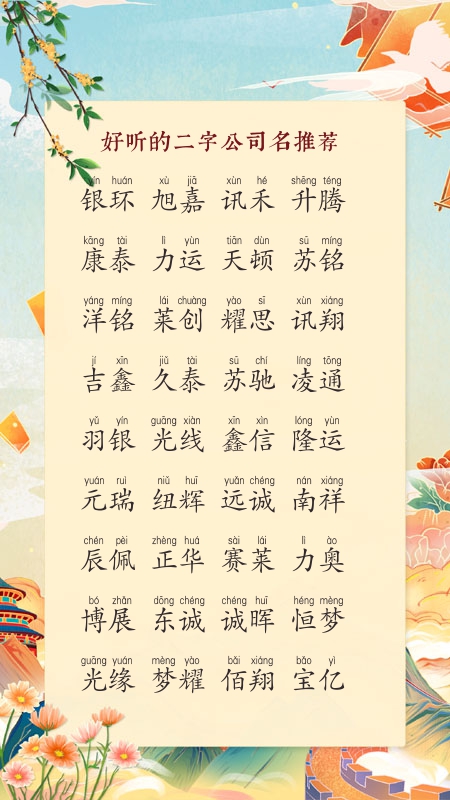 好听的二字公司名推荐
yín huán xù jiā xùn hé shēng téng
银环 旭嘉 讯禾 升腾
kāng tài lì yùn tiān dùn sū míng
康泰 力运 天顿 苏铭
yáng míng lái chuàng yào sī xùn xiáng
洋铭 莱创 耀思 讯翔
jí xīn jiǔ tài sū chí líng tōng
吉鑫 久泰 苏驰 凌通
yǔ yín guāng xiàn xīn xìn lóng yùn
羽银 光线 鑫信 隆运
yuán ruì niǔ huī yuǎn chéng nán xiáng
元瑞 纽辉 远诚 南祥
chén pèi zhèng huá sài lái lì ào
辰佩 正华 赛莱 力奥
bó zhǎn dōng chéng chéng huī héng mèng
博展 东诚 诚晖 恒梦
guāng yuán mèng yào bǎi xiáng bǎo yì
光缘 梦耀 佰翔 宝亿